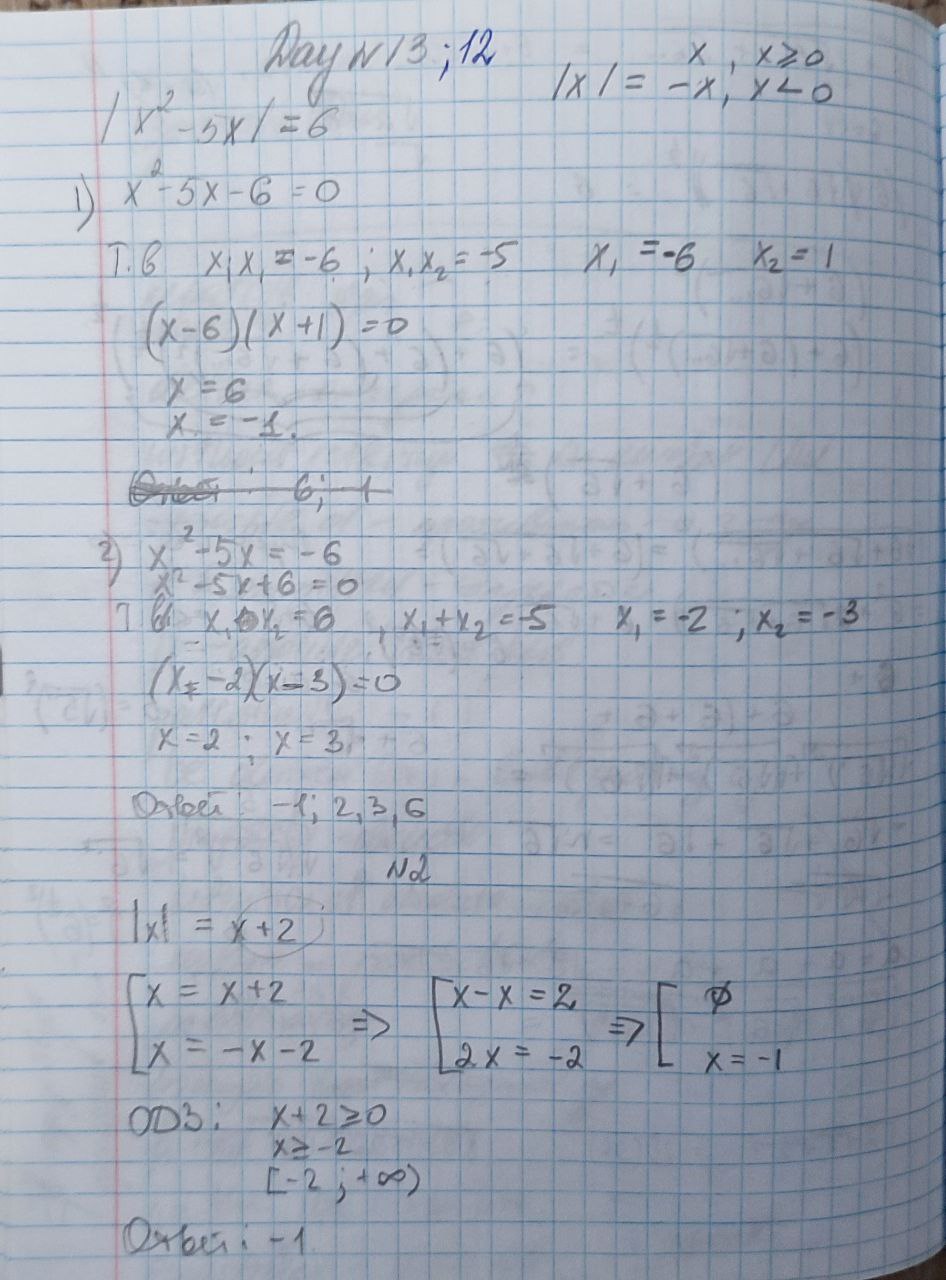 Day N 13 ; 12
|x| = x, x ≥ 0
-x, x < 0
|x² - 5x| = 6
1) x² - 5x - 6 = 0
Т. в x₁ x₁ = -6 ; x₁ x₂ = -5 x₁ = -6 x₂ = 1
(x-6)(x+1) = 0
x = 6
x = -1.
Ответ : 6; 1
2) x² - 5x = -6
x² - 5x + 6 = 0
Т в x₁ x₂ = 6 , x₁ + x₂ = -5 x₁ = -2 ; x₂ = -3
(x -2)(x-3) = 0
x = 2 ; x = 3
Ответ : -1; 2, 3, 6
N2
|x| = x + 2
[x = x+2 => [x - x = 2 => [∅
[x = -x - 2 [2x = -2 [x = -1
ОДЗ: x + 2 ≥ 0
x ≥ -2
[-2 ; +∞)
Ответ : -1